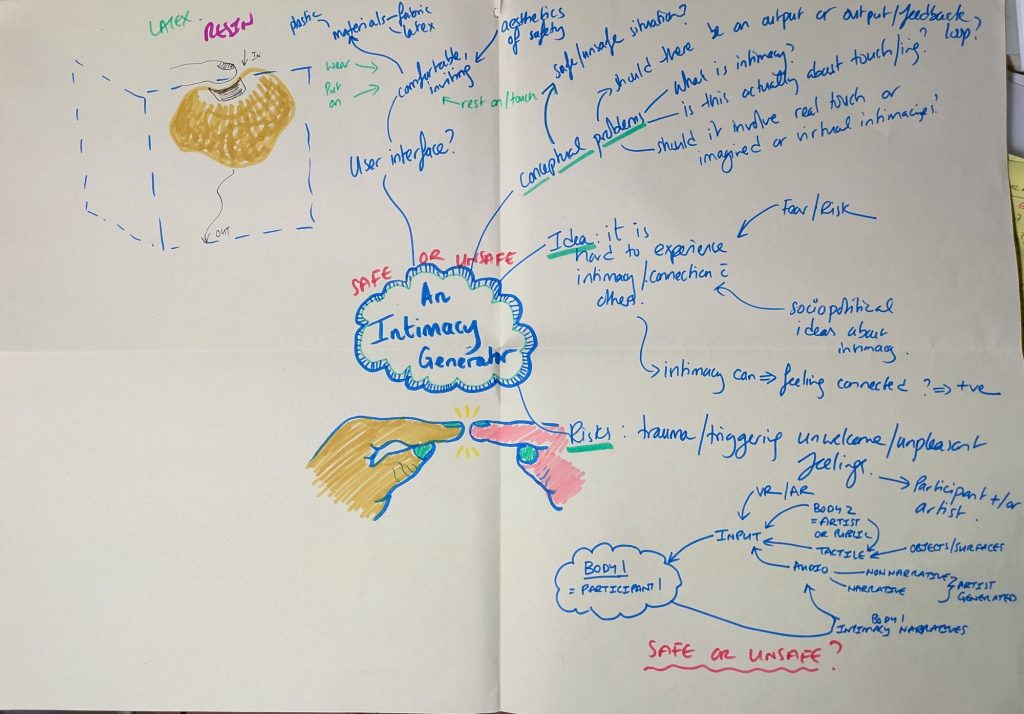 LATEX.
RESIN
IN
OUT
plastic
materials – fabric
latex
aesthetics
of safety
comfortable,
inviting
wear
Put
on
rest on/touch
User interface?
safe/unsafe situation?
should there be an output or output/feedback
loop?
what is intimacy?
is this actually about touch/ing?
conceptual problems
should it involve real touch or
imagined or virtual intimacies?
SAFE OR UNSAFE
An
Intimacy
Generator
Idea: it is
hard to experience
intimacy/connection c̄
others.
Fear/Risk
sociopolitical
ideas about
intimacy.
intimacy can ⇒ feeling connected? ⇒ +ve
Risks: trauma/triggering unwelcome/unpleasant
feelings.
Participant +/or
artist.
VR/AR
BODY 2
= ARTIST
OR PUBLIC
INPUT
TACTILE
OBJECTS/SURFACES
AUDIO
NON NARRATIVE
NARRATIVE
ARTIST
GENERATED
BODY 1
= PARTICIPANT 1
BODY 1
INTIMACY NARRATIVES
SAFE OR UNSAFE?